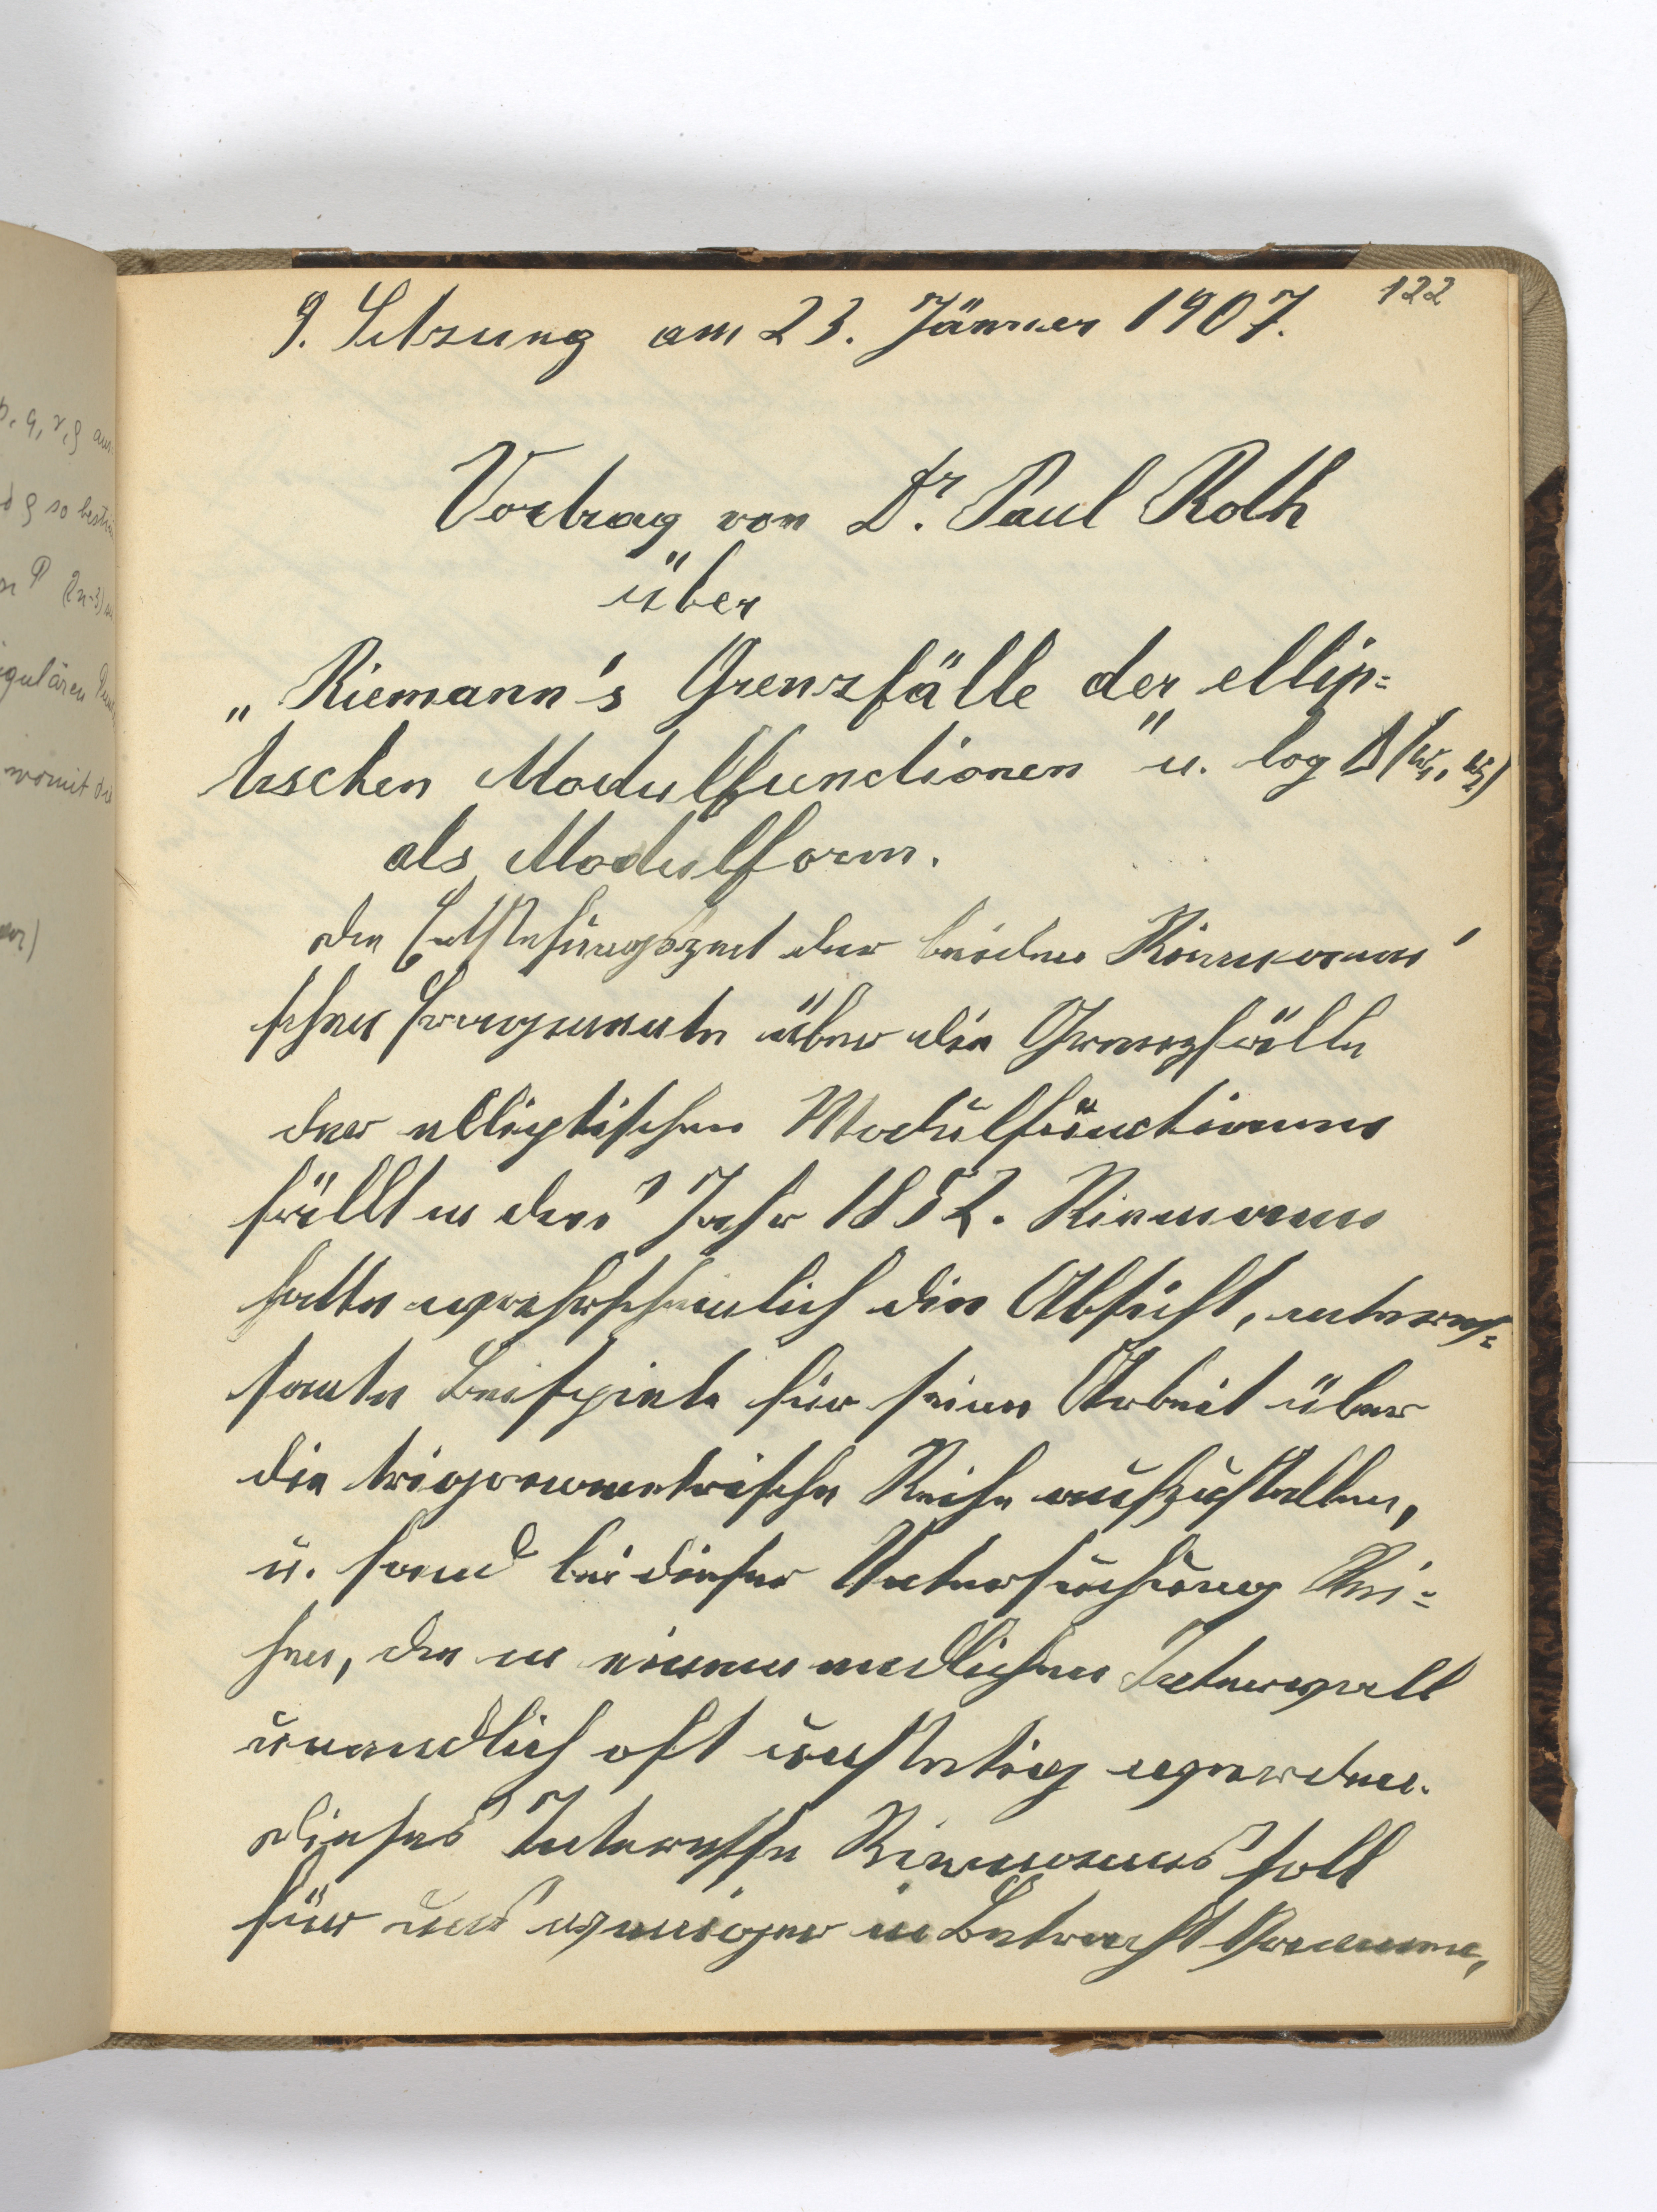 122
9. Sitzung am 23. Jänner 1907.
Vortrag von Dr. Paul Roth
über
„Riemann's Grenzfälle der ellip=
tischen Modulfunctionen" u. log Δ(ω₁, ω₂)
als Modulform.
Die Entstehungszeit der beiden Riemann'
schen Fragmente über die Grenzfälle
der elliptischen Modulfunctionen
fällt in das Jahr 1852. Riemann
hatte wahrscheinlich die Absicht, interes=
sante Beispiele für seine Arbeit über
die trigonometrische Reihe aufzustellen,
u. fand bei dieser Untersuchung Rei=
hen, die in einem endlichen Intervall
unendlich oft unstetig werden.
Dieses Interesse Riemanns soll
für uns weniger in Betracht kommen,
p, q, r, ϱ
ϱ so
P (2n-3)
womit die